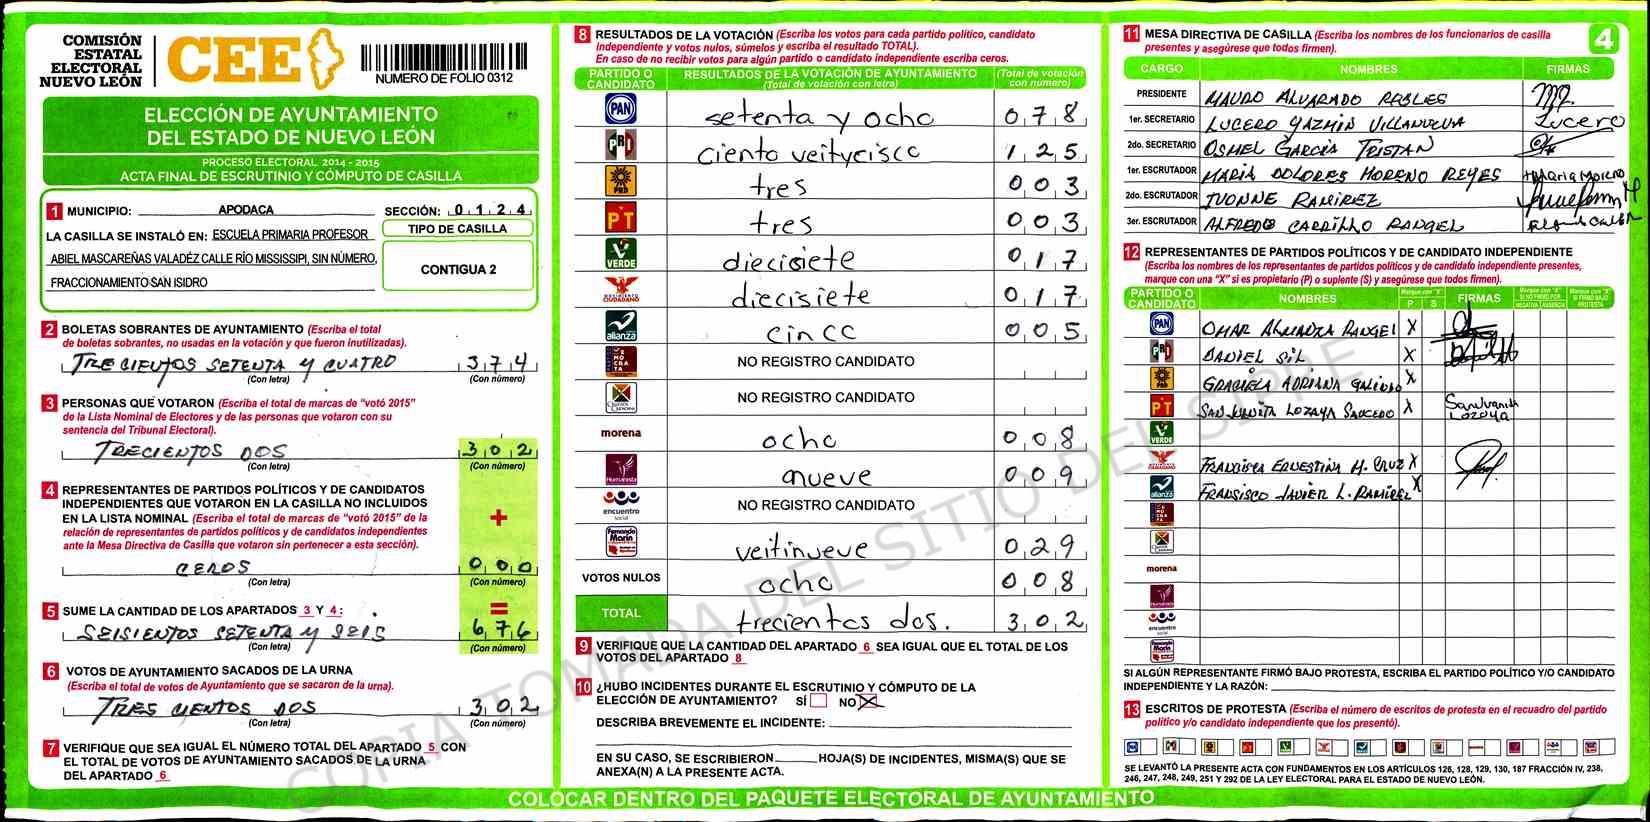 COMISIÓN
ESTATAL
ELECTORAL
NUEVO LEÓN
CEE
NUMERO DE FOLIO 0312
ELECCIÓN DE AYUNTAMIENTO
DEL ESTADO DE NUEVO LEÓN
PROCESO ELECTORAL 2014 - 2015
ACTA FINAL DE ESCRUTINIO Y CÓMPUTO DE CASILLA
1 MUNICIPIO: APODACA SECCIÓN: 0124
LA CASILLA SE INSTALÓ EN: ESCUELA PRIMARIA PROFESOR
ABIEL MASCAREÑAS VALADÉZ CALLE RÍO MISSISSIPI, SIN NÚMERO,
FRACCIONAMIENTO SAN ISIDRO
TIPO DE CASILLA
CONTIGUA 2
2 BOLETAS SOBRANTES DE AYUNTAMIENTO (Escriba el total
de boletas sobrantes, no usadas en la votación y que fueron inutilizadas).
TRECIENTOS SETENTA Y CUATRO 374
(Con letra) (Con número)
3 PERSONAS QUE VOTARON (Escriba el total de marcas de "votó 2015"
de la Lista Nominal de Electores y de las personas que votaron con su
sentencia del Tribunal Electoral).
TRECIENTOS DOS 302
(Con letra) (Con número)
4 REPRESENTANTES DE PARTIDOS POLÍTICOS Y DE CANDIDATOS
INDEPENDIENTES QUE VOTARON EN LA CASILLA NO INCLUIDOS
EN LA LISTA NOMINAL (Escriba el total de marcas de "votó 2015" de la
relación de representantes de partidos políticos y de candidatos independientes
ante la Mesa Directiva de Casilla que votaron sin pertenecer a esta sección).
+
CEROS 000
(Con letra) (Con número)
=
5 SUME LA CANTIDAD DE LOS APARTADOS 3 Y 4:
SEISIENTOS SETENTA Y SEIS 676
(Con letra) (Con número)
6 VOTOS DE AYUNTAMIENTO SACADOS DE LA URNA
(Escriba el total de votos de Ayuntamiento que se sacaron de la urna).
TRES CIENTOS DOS 302
(Con letra) (Con número)
7 VERIFIQUE QUE SEA IGUAL EL NÚMERO TOTAL DEL APARTADO 5 CON
EL TOTAL DE VOTOS DE AYUNTAMIENTO SACADOS DE LA URNA
DEL APARTADO 6
8 RESULTADOS DE LA VOTACIÓN (Escriba los votos para cada partido político, candidato
independiente y votos nulos, súmelos y escriba el resultado TOTAL).
En caso de no recibir votos para algún partido o candidato independiente escriba ceros.
PARTIDO O CANDIDATO RESULTADOS DE LA VOTACIÓN DE AYUNTAMIENTO (Total de votación con letra) (Total de votación con número)
PAN setenta y ocho 078
PRI ciento veitycisco 125
PRD tres 003
PT tres 003
VERDE diecisiete 017
MOVIMIENTO CIUDADANO diecisiete 017
alianza cinco 005
DEMOCRATA NO REGISTRO CANDIDATO
NO REGISTRO CANDIDATO
morena ocho 008
Humanista nueve 009
encuentro social NO REGISTRO CANDIDATO
Fernando Marín veitinueve 029
VOTOS NULOS ocho 008
TOTAL trecientos dos. 302
9 VERIFIQUE QUE LA CANTIDAD DEL APARTADO 6 SEA IGUAL QUE EL TOTAL DE LOS
VOTOS DEL APARTADO 8
10 ¿HUBO INCIDENTES DURANTE EL ESCRUTINIO Y CÓMPUTO DE LA
ELECCIÓN DE AYUNTAMIENTO? SÍ NO X
DESCRIBA BREVEMENTE EL INCIDENTE:
EN SU CASO, SE ESCRIBIERON HOJA(S) DE INCIDENTES, MISMA(S) QUE SE
ANEXA(N) A LA PRESENTE ACTA.
11 MESA DIRECTIVA DE CASILLA (Escriba los nombres de los funcionarios de casilla
presentes y asegúrese que todos firmen).
4
CARGO NOMBRES FIRMAS
PRESIDENTE MAURO ALVARADO ROBLES
1er. SECRETARIO LUCERO YAZMIN VILLANUEVA Lucero
2do. SECRETARIO OSMEL GARCÍA TRISTAN
1er. ESCRUTADOR MARÍA DOLORES MORENO REYES MARIA MORENO
2do. ESCRUTADOR IVONNE RAMIREZ
3er. ESCRUTADOR ALFREDO CARRILLO RANGEL
12 REPRESENTANTES DE PARTIDOS POLÍTICOS Y DE CANDIDATO INDEPENDIENTE
(Escriba los nombres de los representantes de partidos políticos y de candidato independiente presentes,
marque con una "X" si es propietario (P) o suplente (S) y asegúrese que todos firmen).
PARTIDO O CANDIDATO NOMBRES Marque con "X" P S FIRMAS Marque con "X" SI NO FIRMÓ POR NEGATIVA AUSENCIA Marque con "X" SI FIRMÓ BAJO PROTESTA
PAN OMAR ALMANZA RANGEL X
PRI DANIEL GIL X
PRD GRACIELA ADRIANA GALINDO X
PT SAN JUANITA LOZAYA SAUCEDO X Sanjuanita Lozoya
VERDE
MOVIMIENTO CIUDADANO FRANCISCA ERNESTINA M. CRUZ X
alianza FRANSISCO JAVIER L. RAMIREZ X
morena
Humanista
encuentro social
SI ALGÚN REPRESENTANTE FIRMÓ BAJO PROTESTA, ESCRIBA EL PARTIDO POLÍTICO Y/O CANDIDATO
INDEPENDIENTE Y LA RAZÓN:
13 ESCRITOS DE PROTESTA (Escriba el número de escritos de protesta en el recuadro del partido
político y/o candidato independiente que los presentó).
SE LEVANTÓ LA PRESENTE ACTA CON FUNDAMENTOS EN LOS ARTÍCULOS 126, 128, 129, 130, 187 FRACCIÓN IV, 238,
246, 247, 248, 249, 251 Y 292 DE LA LEY ELECTORAL PARA EL ESTADO DE NUEVO LEÓN.
COLOCAR DENTRO DEL PAQUETE ELECTORAL DE AYUNTAMIENTO
COPIA TOMADA DEL SITIO DEL SIPRE